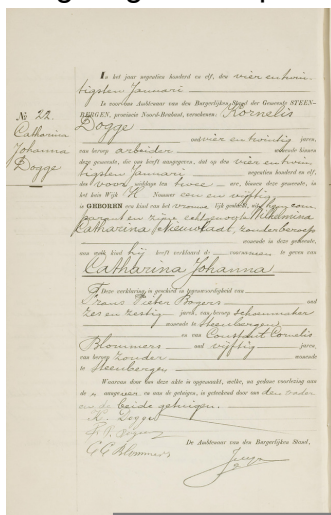 N° 22.
Catharina
Johanna
Dogge
In het jaar negentien honderd en elf, den vier en twin-
tigsten Januari
Is voor ons Ambtenaar van den Burgerlijken Stand der Gemeente STEEN-
BERGEN, provincie Noord-Brabant, verschenen: Kornelis
Dogge
oud vier en twintig jaren,
van beroep arbeider wonende binnen
deze gemeente, die ons heeft aangegeven, dat op den vier en twin-
tigsten Januari negentien honderd en elf,
des voor middags ten twee ure, binnen deze gemeente, in
het huis Wijk Nummer een en vijftig
is GEBOREN een kind van het vrouwelijk geslacht, uit hem com-
parant en zijne echtgenoote
Catharina zonder beroep
wonende in deze gemeente,
aan welk kind hij heeft verklaard de voornamen te geven van
Catharina Johanna
Deze verklaring is geschied in tegenwoordigheid van
Frans Pieter Bogers oud
zes en zestig jaren, van beroep schoenmaker
wonende te Steenbergen
en van Constant Cornelis
Blommers oud vijftig jaren,
van beroep zonder wonende
te Steenbergen
Waarvan door ons deze akte is opgemaakt, welke, na gedane voorlezing aan
de aangever en aan de getuigen, is geteekend door ons den vader
en de beide getuigen.
K. Dogge
C C Blommers
De Ambtenaar van den Burgerlijken Stand,